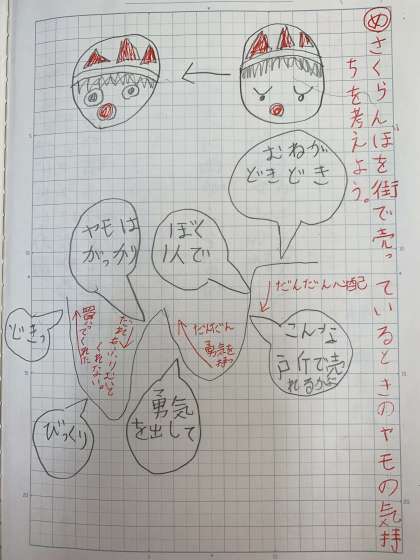 め さくらんぼを街で売っているときのヤモの気持
ちを考えよう。
むねが
どきどき
だんだん心配
こんな
戸斤で売
れるかな
ぼく
1人で
だんだん
勇気を
勇気
を出して
ヤモは
がっかり
だれもふりむいて
くれない。
買ってくれた
どきっ
びっくり